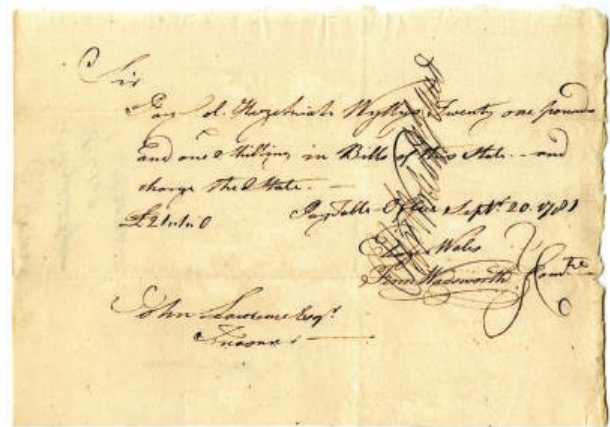 Sir
Pay Col. Hezekiah Wyllys Twenty one pounds
and one Shilling in Bills of this State — and
charge the State. —
£21..1..0 Pay Table-Office Sept.r 20. 1781
Wales
Fenn Wadsworth Comtee
John Lawrence Esq.r
Treasurer